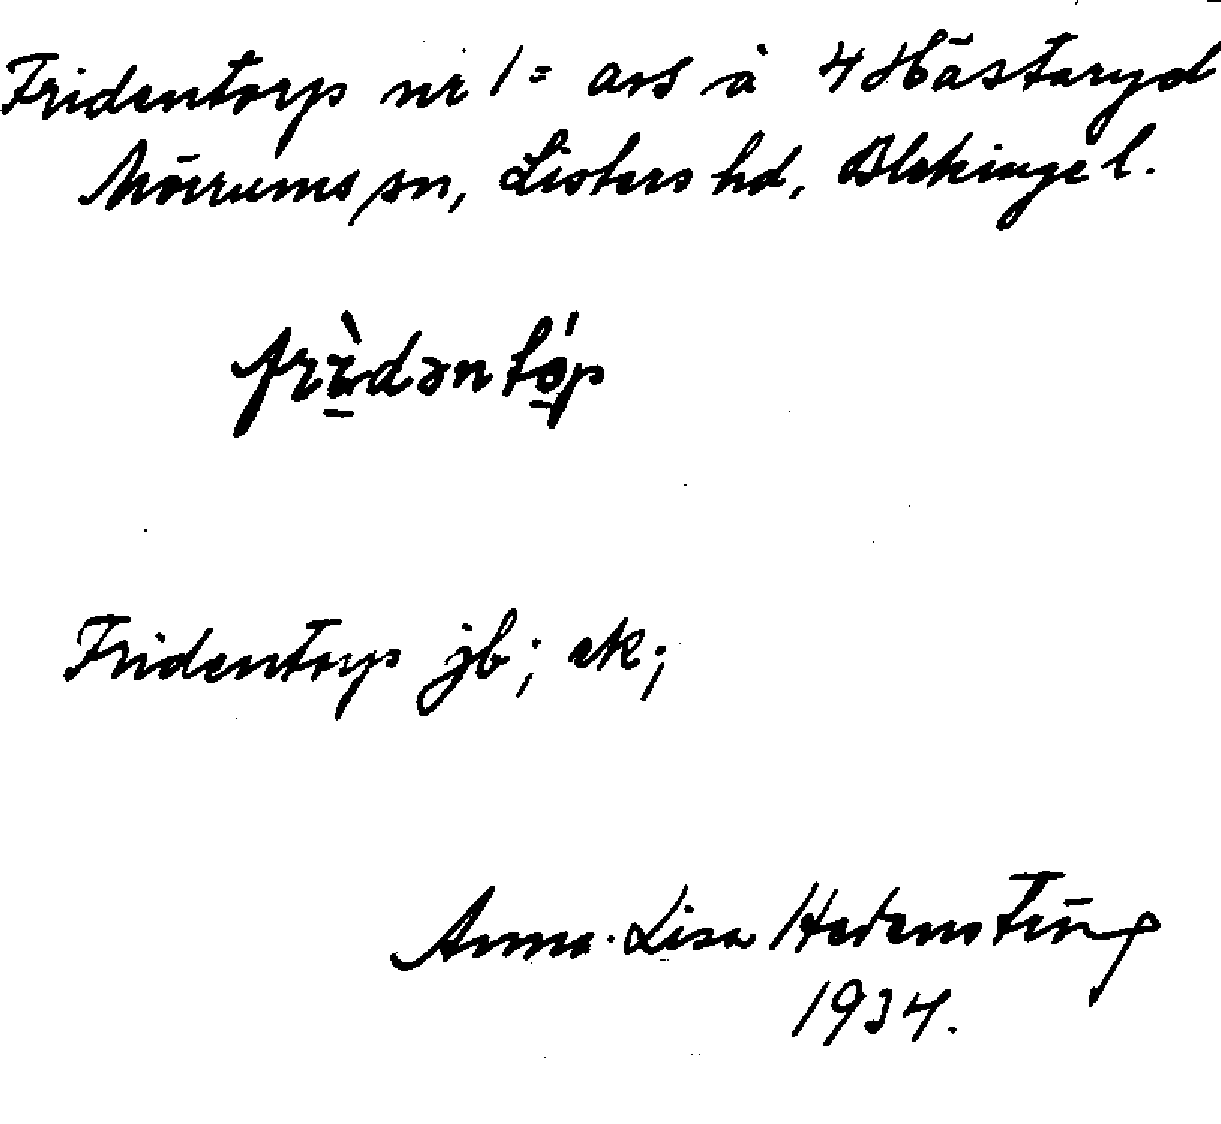 Fridentorp nr 1 = avs å 4 Hästaryd
Mörrums sn, Listers hd, Blekinge l.
frìdəntóp
Fridentorp jb; ek;
Anna-Lisa Hedenstierna
1934.